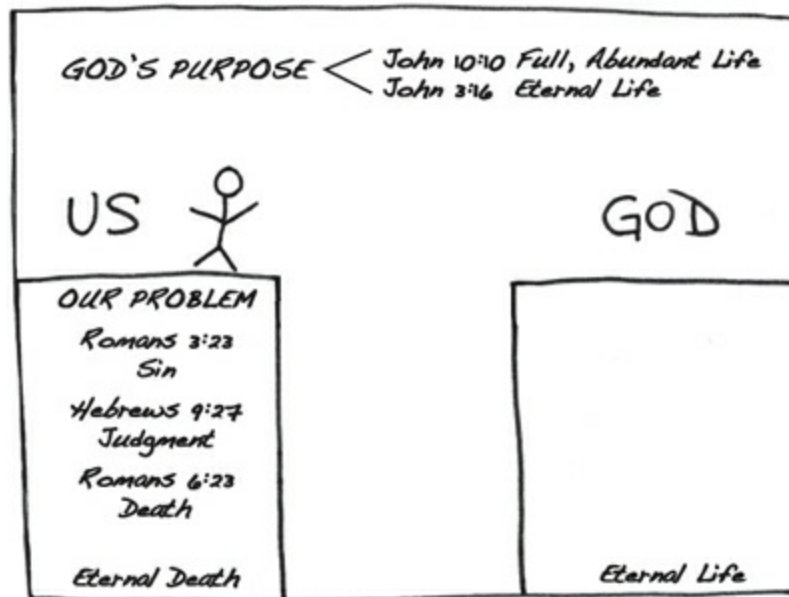 GOD'S PURPOSE
John 10:10 Full, Abundant Life
John 3:16 Eternal Life
US
GOD
OUR PROBLEM
Romans 3:23
Sin
Hebrews 9:27
Judgment
Romans 6:23
Death
Eternal Death
Eternal Life